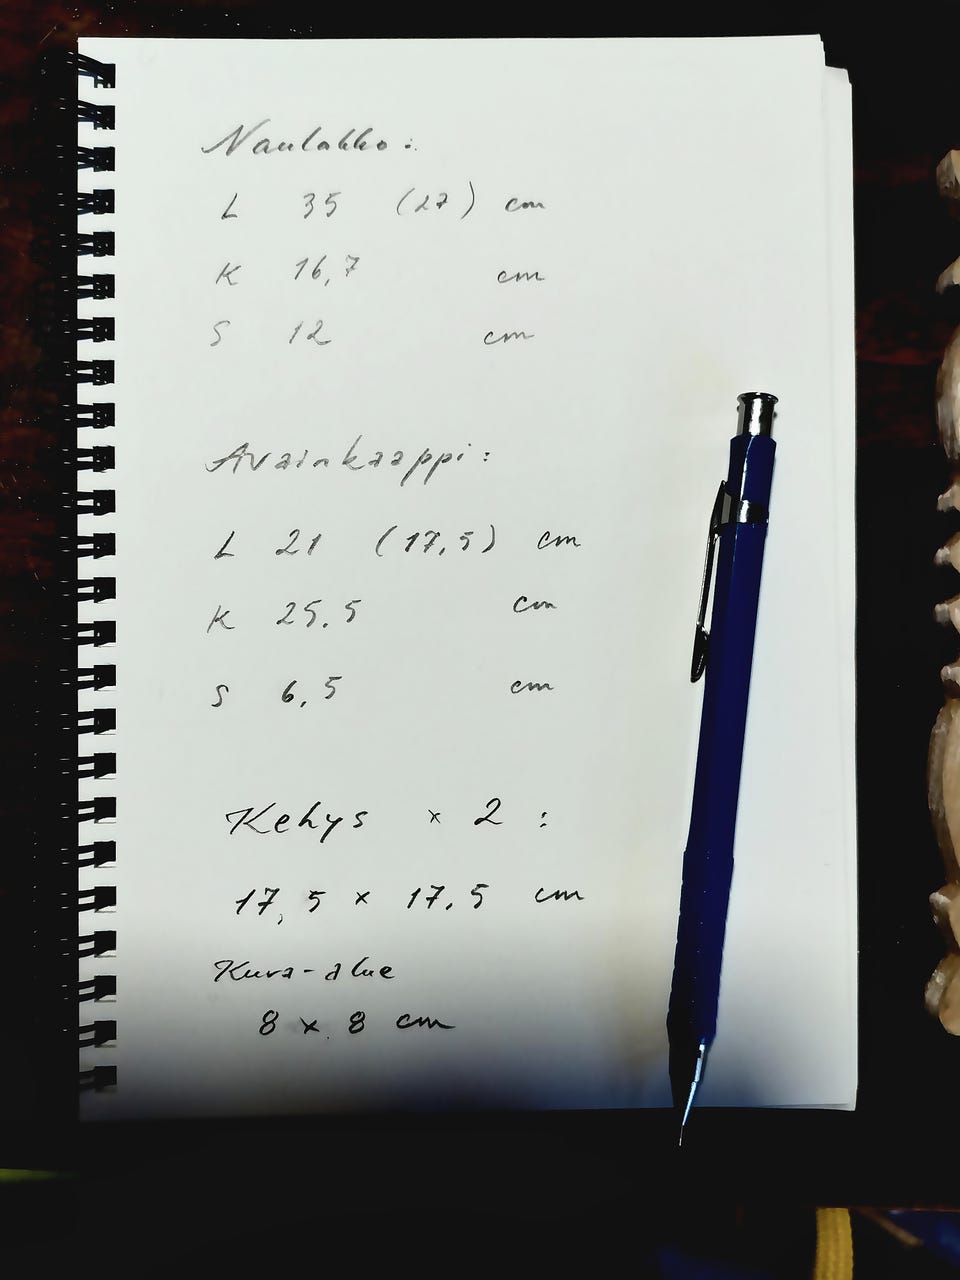 Naulakko:
L 35 (27) cm
K 16,7 cm
S 12 cm
Avainkaappi:
L 21 (17,5) cm
K 25.5 cm
S 6,5 cm
Kehys x 2 :
17,5 x 17,5 cm
Kuva-alue
8 x 8 cm